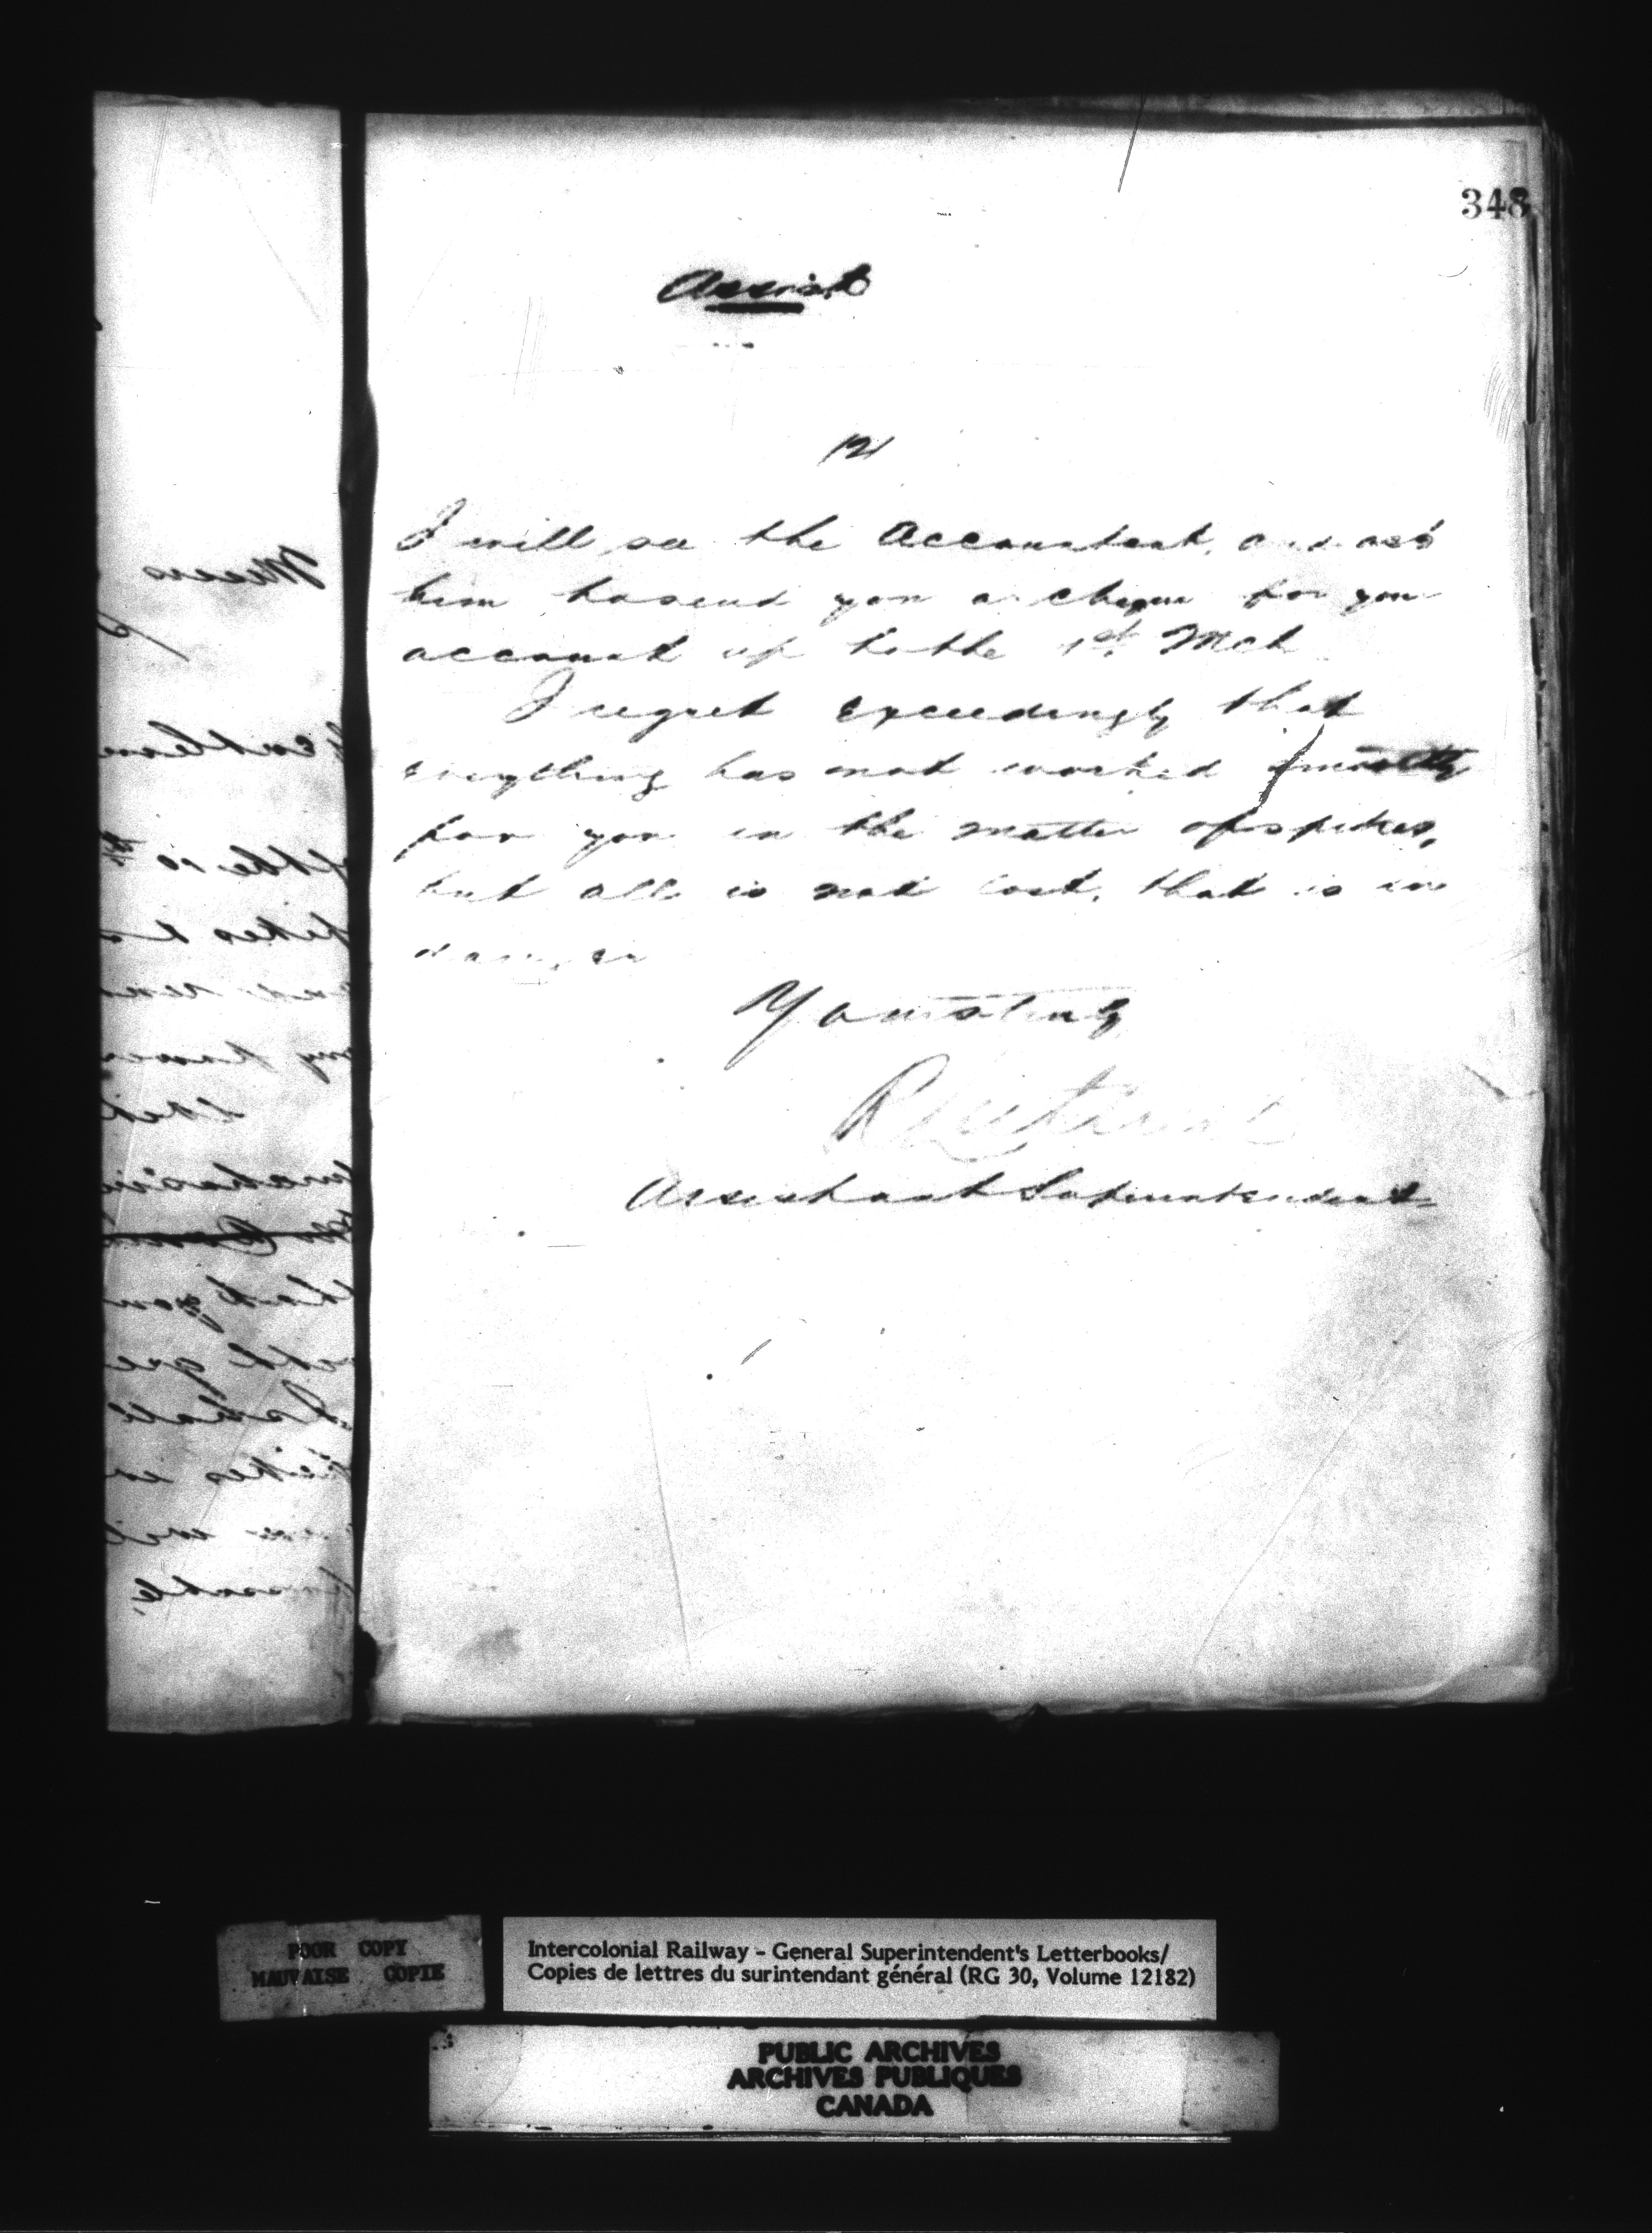 348
Assist
/2/
I will see the Accountant, and ask
him to send you a cheque for your
account up to the 1st Mch
I regret exceedingly that
everything has not worked smoothly
for you in the matter of spikes,
but all is not lost, that is in
danger
Yours truly
Assistant Superintendent
Messrs
Gentlemen
of the 10th
spikes
my power
that you
I shall
spikes in
possible,
POOR COPY
MAUVAISE COPIE
Intercolonial Railway - General Superintendent's Letterbooks/
Copies de lettres du surintendant général (RG 30, Volume 12182)
PUBLIC ARCHIVES
ARCHIVES PUBLIQUES
CANADA